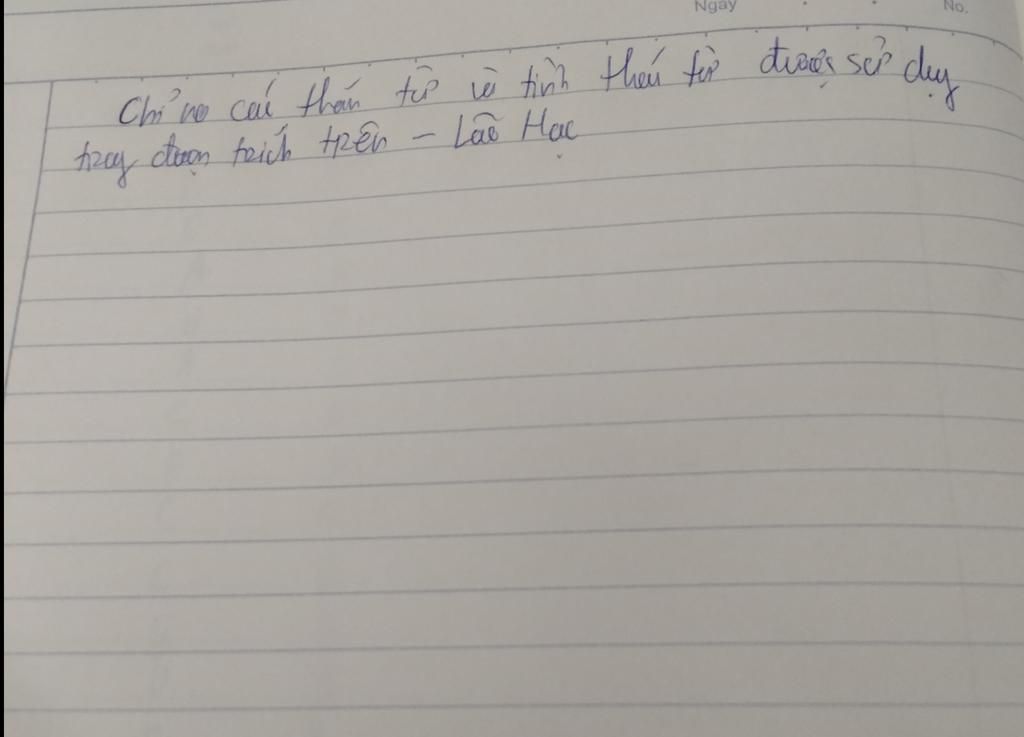 Ngày No.
Chỉ ra các thán từ và tình thái từ được sử dụng
trong đoạn trích trên - Lão Hạc